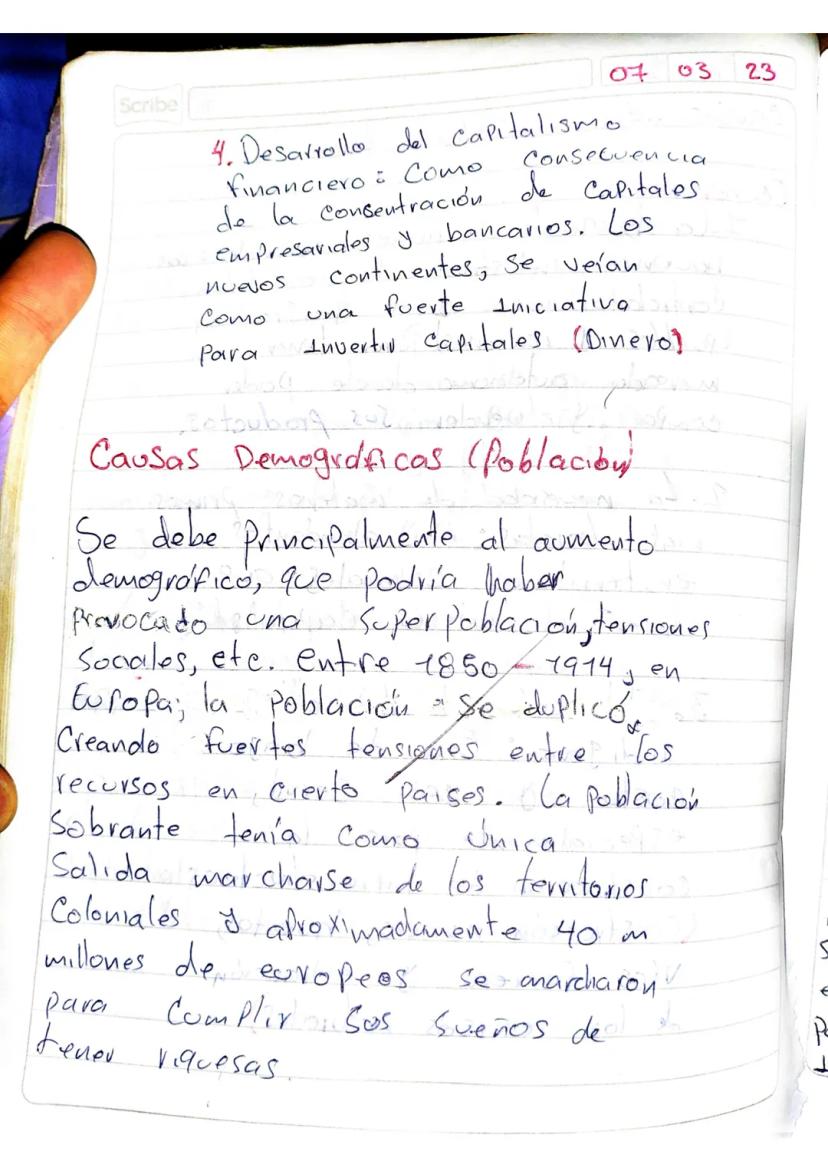 07 03 23
Scribe
4. Desarrollo del capitalismo
financiero: Como consecuencia
de la consentración de capitales
empresariales y bancarios. Los
nuevos continentes, se veían
como una fuerte iniciativa
para invertir capitales (Dinero)
Causas Demográficas (Población)
Se debe principalmente al aumento
demográfico, que podría haber
provocado una superpoblación, tensiones
sociales, etc. entre 1850 - 1914, en
Europa; la población se duplicó,
Creando fuertes tensiones entre los
recursos en cierto países. la población
sobrante tenía como única
salida marcharse de los territorios
coloniales y aproximadamente 40 m
millones de europeos se marcharon
para cumplir sus sueños de
tener riquesas.